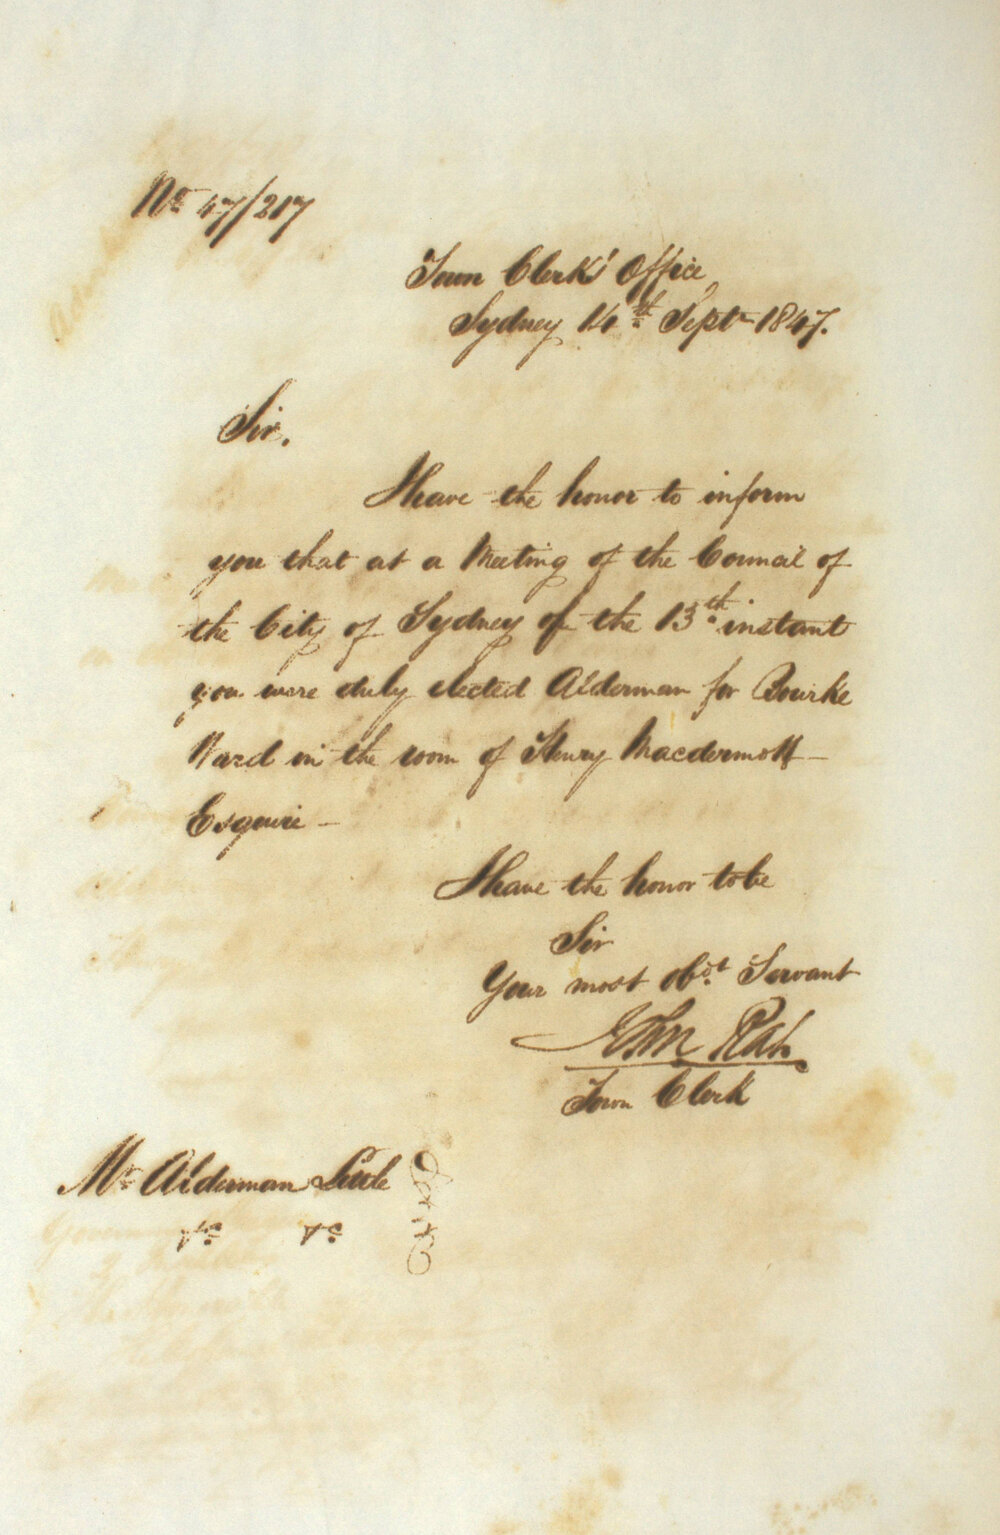 No 47/217
Town Clerk's Office,
Sydney 14th Septr 1847.
Sir,
I have the honor to inform
you that at a Meeting of the Council of
the City of Sydney of the 13th instant
you were duly elected Alderman for Bourke
Ward in the room of Henry Macdermott -
Esquire -
I have the honor to be
Sir
Your most obdt Servant
John Rae
Town Clerk
Mr Alderman Little
&c &c